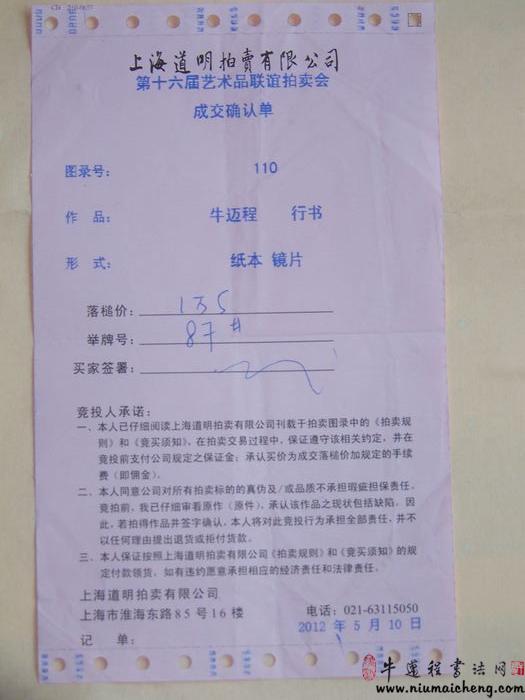 上海道明拍賣有限公司
第十六届艺术品联谊拍卖会
成交确认单
图录号： 110
作 品： 牛迈程 行书
形 式： 纸本 镜片
落槌价：
举牌号： 87#
买家签署：
竞投人承诺：
一、本人已仔细阅读上海道明拍卖有限公司刊载于拍卖图录中的《拍卖规
则》和《竞买须知》，在拍卖交易过程中，保证遵守该相关约定，并在
竞投前支付公司规定之保证金；承认买价为成交落槌价加规定的手续
费（即佣金）。
二、本人同意公司对所有拍卖标的的真伪及/或品质不承担瑕疵担保责任。
竞拍前，我已仔细审看原作（原件），承认该作品之现状包括缺陷，因
此，若拍得作品并签字确认，本人将对此竞投行为承担全部责任，并不
以任何理由提出退货或拒付货款。
三、本人保证按照上海道明拍卖有限公司《拍卖规则》和《竞买须知》的规
定付款领货，如有违约愿意承担相应的经济责任和法律责任。
上海道明拍卖有限公司
上海市淮海东路85号16楼 电话：021-63115050
记 单： 2012 年 5 月 10 日
牛邁程書法网
www.niumaicheng.com